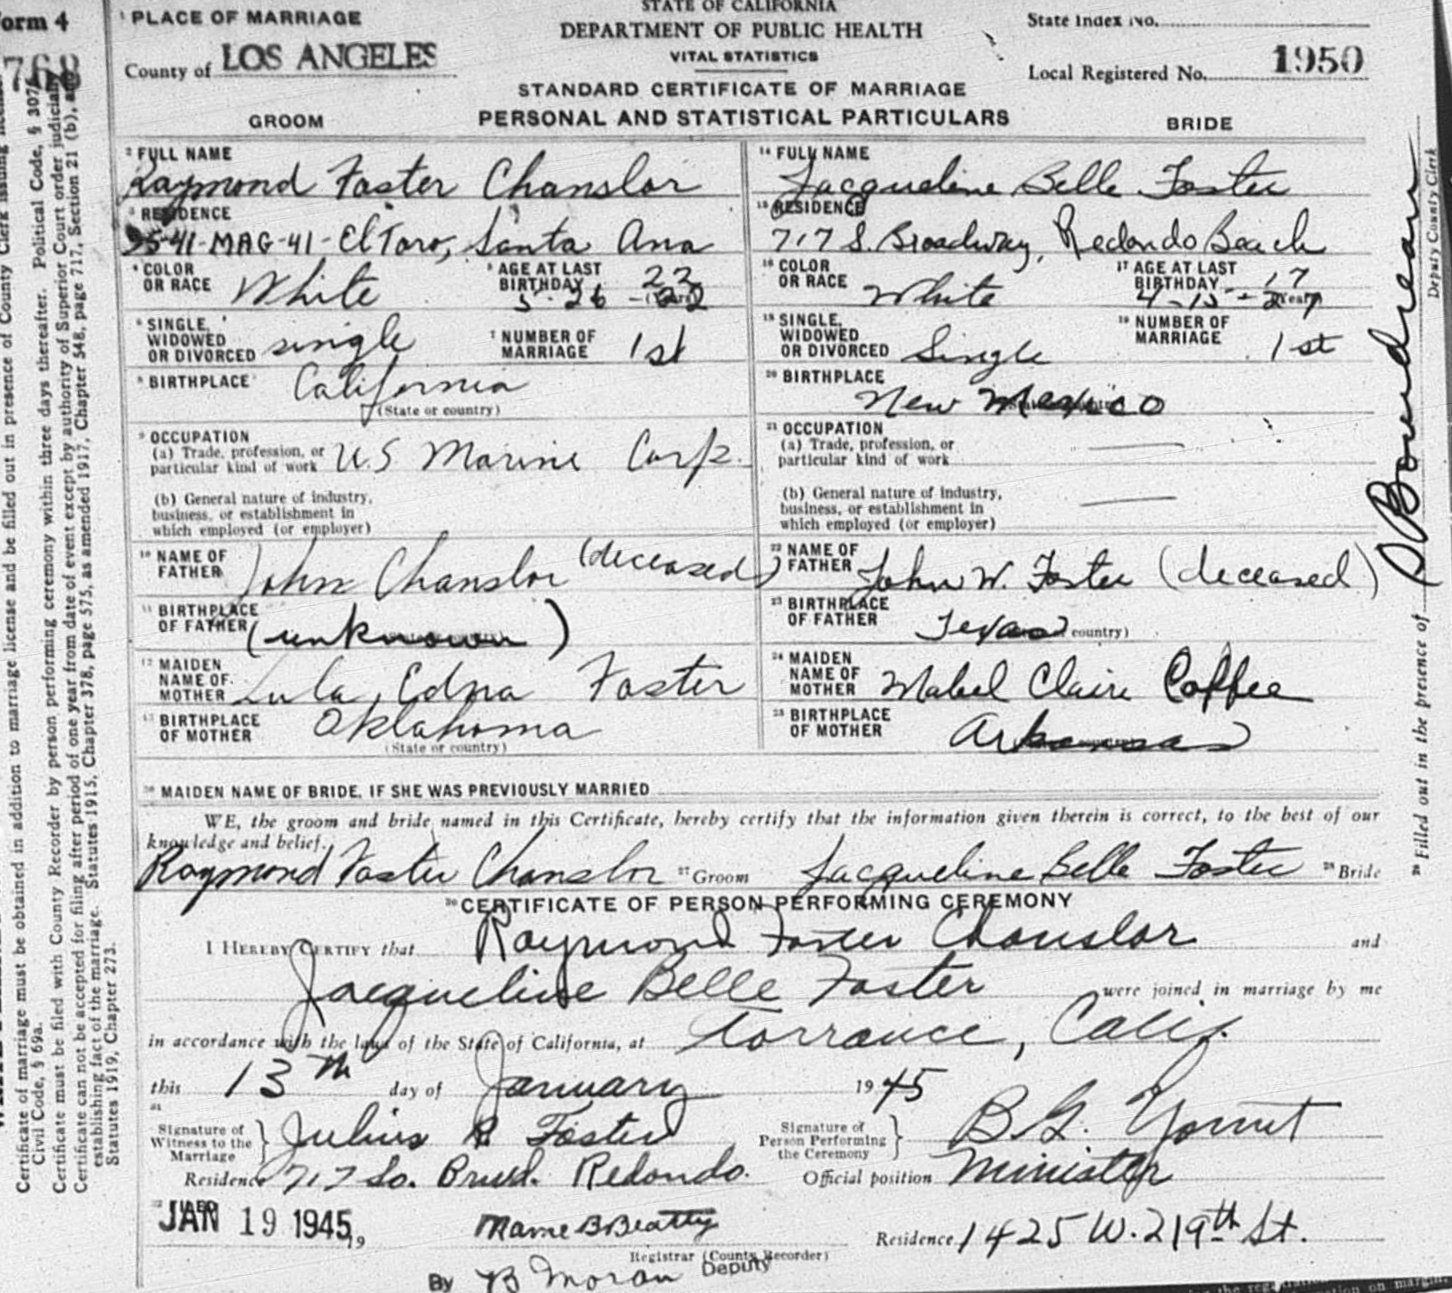 Form 4
768
¹ PLACE OF MARRIAGE
County of LOS ANGELES
STATE OF CALIFORNIA
DEPARTMENT OF PUBLIC HEALTH
VITAL STATISTICS
STANDARD CERTIFICATE OF MARRIAGE
State Index No.
Local Registered No. 1950
GROOM PERSONAL AND STATISTICAL PARTICULARS BRIDE
² FULL NAME Raymond Foster Chanslor
¹⁴ FULL NAME Jacqueline Belle Foster
³ RESIDENCE 41-MAG-41-El Toro, Santa Ana
¹⁵ RESIDENCE 717 S. Broadway, Redondo Beach
⁴ COLOR OR RACE White
⁵ AGE AT LAST BIRTHDAY 22
5-26-22 (Years)
¹⁶ COLOR OR RACE White
¹⁷ AGE AT LAST BIRTHDAY 17
4-15-27 (Years)
⁶ SINGLE, WIDOWED OR DIVORCED single
⁷ NUMBER OF MARRIAGE 1st
¹⁸ SINGLE, WIDOWED OR DIVORCED Single
¹⁹ NUMBER OF MARRIAGE 1st
⁸ BIRTHPLACE California
(State or country)
²⁰ BIRTHPLACE New Mexico
⁹ OCCUPATION
(a) Trade, profession, or particular kind of work US Marine Corp.
(b) General nature of industry, business, or establishment in which employed (or employer)
²¹ OCCUPATION
(a) Trade, profession, or particular kind of work
(b) General nature of industry, business, or establishment in which employed (or employer)
¹⁰ NAME OF FATHER John Chanslor (deceased)
²² NAME OF FATHER John W. Foster (deceased)
¹¹ BIRTHPLACE OF FATHER (unknown)
²³ BIRTHPLACE OF FATHER Texas country)
¹² MAIDEN NAME OF MOTHER Lula Edna Foster
²⁴ MAIDEN NAME OF MOTHER Mabel Claire Coffee
¹³ BIRTHPLACE OF MOTHER Oklahoma
(State or country)
²⁵ BIRTHPLACE OF MOTHER Arkansas
²⁶ MAIDEN NAME OF BRIDE, IF SHE WAS PREVIOUSLY MARRIED
WE, the groom and bride named in this Certificate, hereby certify that the information given therein is correct, to the best of our
knowledge and belief.
Raymond Foster Chanslor ²⁷ Groom Jacqueline Belle Foster ²⁸ Bride
³⁰ CERTIFICATE OF PERSON PERFORMING CEREMONY
I HEREBY CERTIFY that Raymond Foster Chanslor and
Jacqueline Belle Foster were joined in marriage by me
in accordance with the laws of the State of California, at Torrance, Calif.
this 13th day of January 1945
³¹ Signature of Witness to the Marriage } Julius R. Foster
Signature of Person Performing the Ceremony } B.G. Yount
Residence 717 So. Brwd. Redondo.
Official position Minister
³² FILED JAN 19 1945, 19
Mame B Beatty
Registrar (County Recorder)
By B Moran Deputy
Residence 1425 W. 219th St.
²⁹ Filled out in the presence of Boudreau Deputy County Clerk
Certificate of marriage must be obtained in addition to marriage license and be filled out in presence of County Clerk issuing license.
Civil Code, § 69a.
Certificate must be filed with County Recorder by person performing ceremony within three days thereafter. Political Code, § 307
Certificate can not be accepted for filing after period of one year from date of event except by authority of Superior Court order judicially
establishing fact of the marriage. Statutes 1915, Chapter 378, page 575, as amended 1917, Chapter 548, page 717, Section 21 (b),
Statutes 1919, Chapter 273.